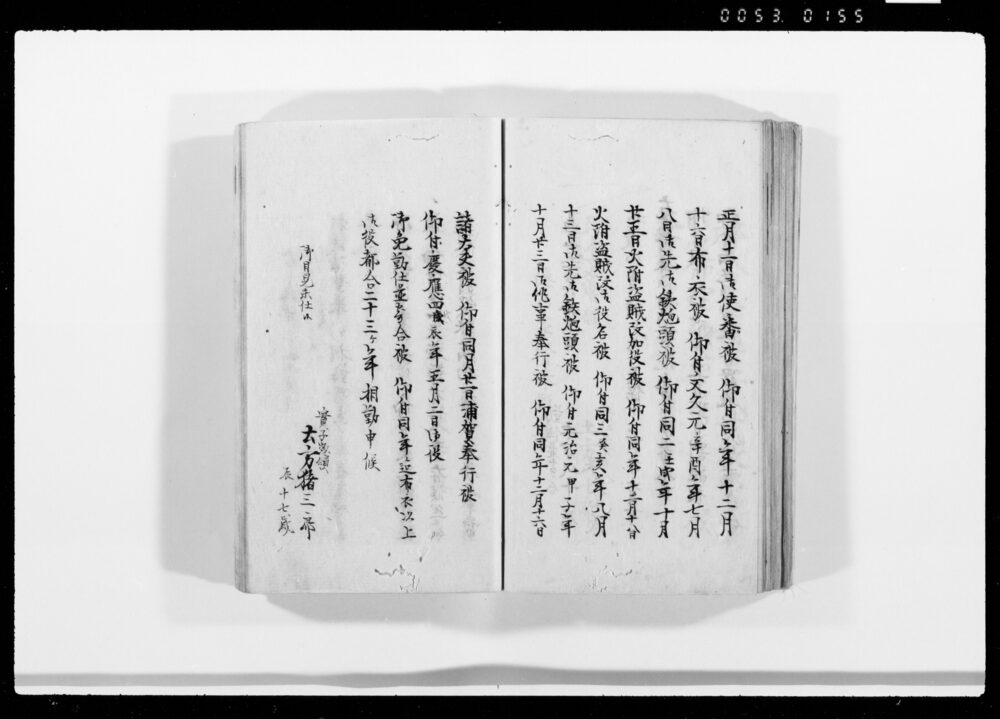 0053.0155
正月十一日御使番被 仰付同年十二月
十六日布衣被 仰付文久元辛酉年七月
八日御先御鉄炮頭被 仰付同二壬戌年十月
廿五日火附盗賊改加役被 仰付同年十二月十八日
火附盗賊改御役名被 仰付同三癸亥年八月
十三日御先御鉄炮頭被 仰付元治元甲子年
十月廿三日御作事奉行被 仰付同年十二月十六日
諸大夫被 仰付同月廿一日浦賀奉行被
仰付慶應四戊辰年五月二日御役
御免勤仕並寄合被 仰付同年迄布衣以上
御役都合二十三ヶ年相勤申候
御目見未仕候
實子惣領
土方 三郎
辰十七歳